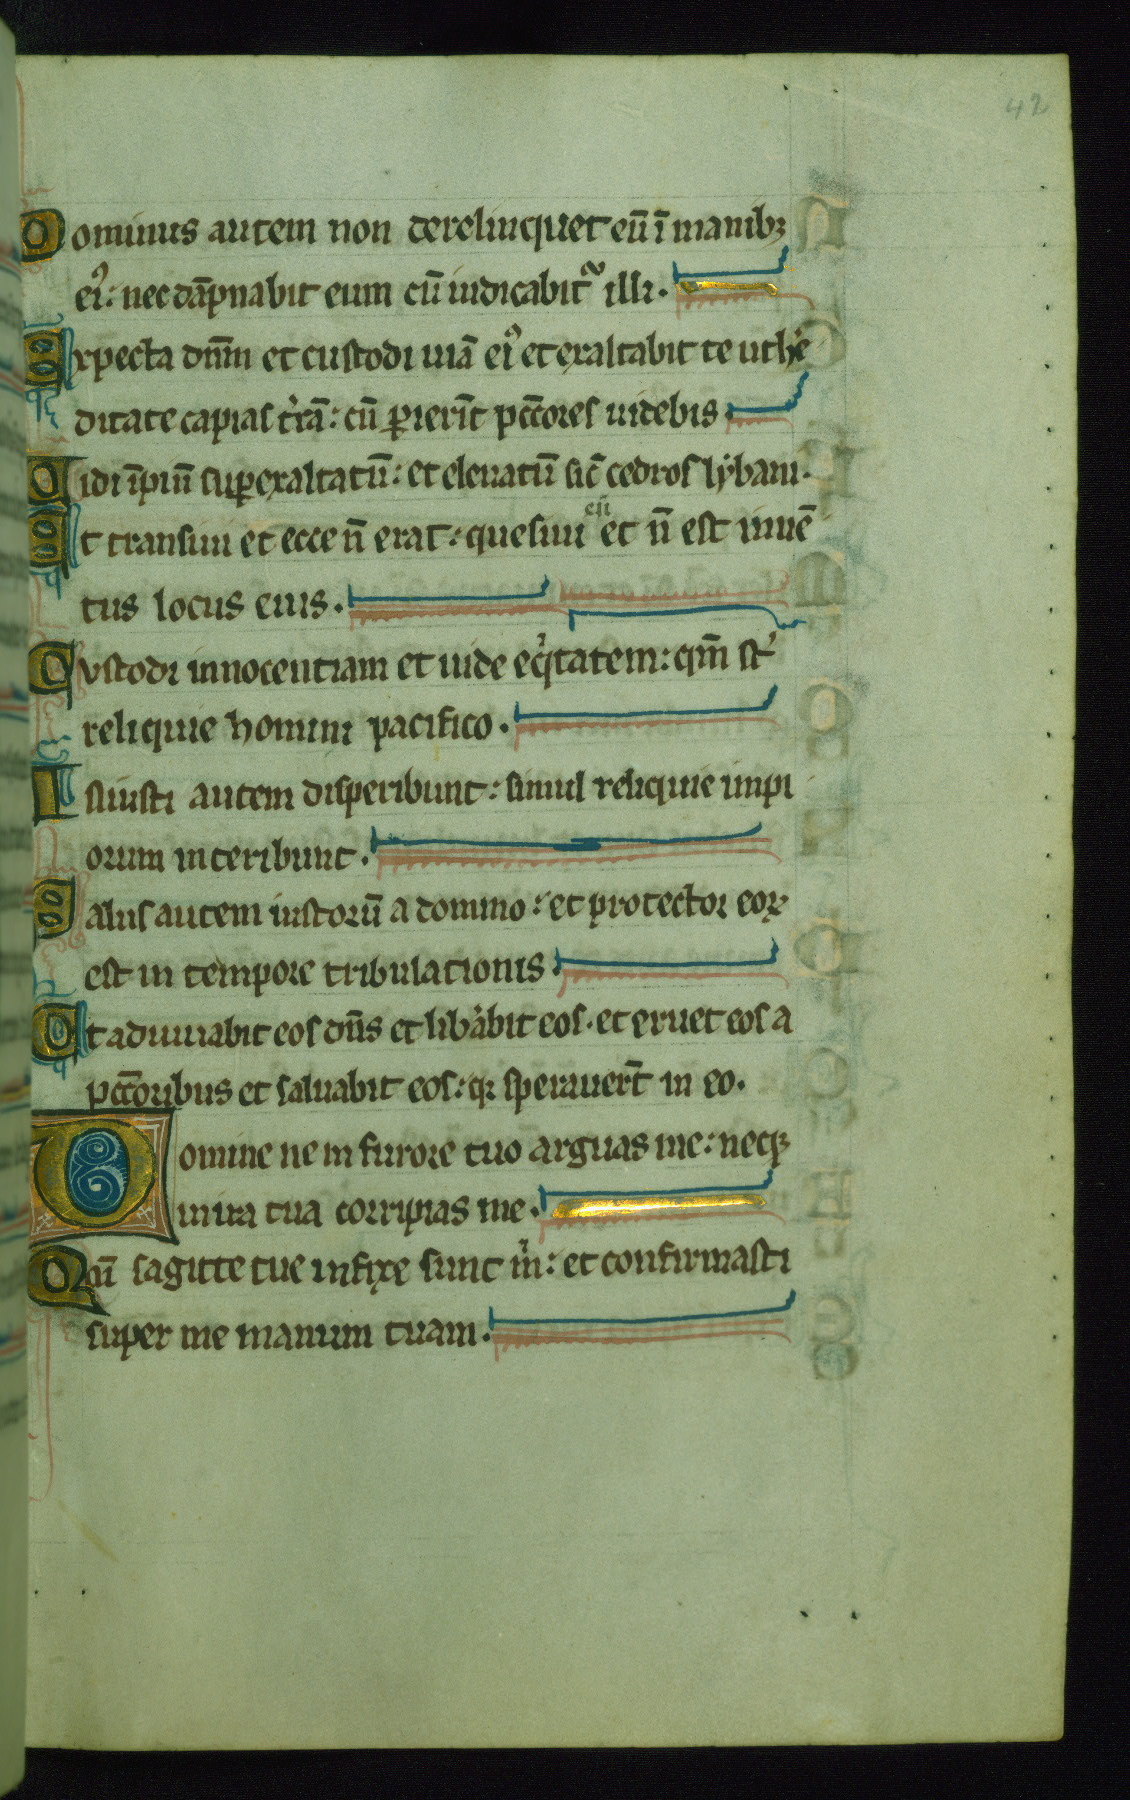 42
Dominus autem non derelinquet eū ī manibꝫ
eiꝰ: nec dāpnabit eum cū iudicabit᷑ illi.
Expecta dn̄m et custodi uiā eiꝰ et exaltabit te ut hè
ditate capias tr̀ā: cū ꝑierīt pctōres uidebis.
Vidi īpiū suꝑexaltatū: et eleuatū sic̄ cedros lybani.
Et transiui et ecce n̄ erat: quesiui eū et n̄ est inuē
tus locus eius.
Custodi innocentiam et uide eqͥtatem: qm̄ st̕
reliquie homini pacifico.
Iniusti autem disperibunt: simul reliquie impi
orum interibunt.
Salus autem iustorū a domino: et protector eoꝝ
est in tempore tribulationis.
Et adiuuabit eos dn̄s et lib̕abit eos. et eruet eos a
pctōribus et saluabit eos: qꝛ sperauer̄t in eo.
Domine ne in furore tuo arguas me: neqꝫ
in ira tua corripias me.
Qm̄ sagitte tue infixe sunt mͥ: et confirmasti
super me manum tuam.